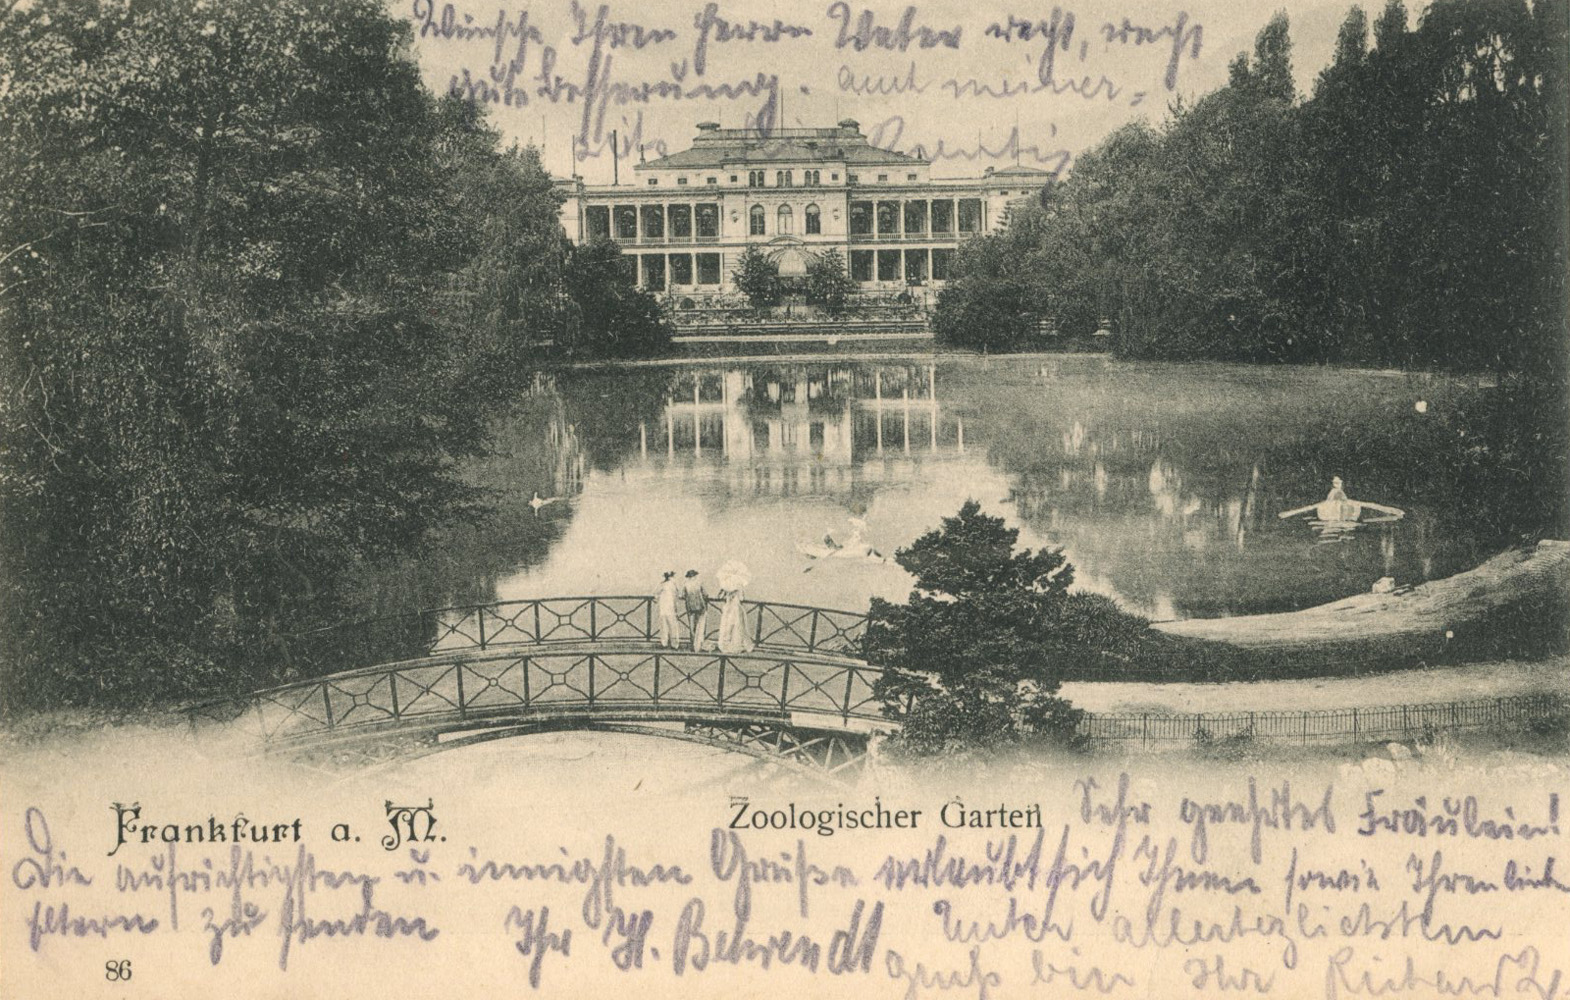 Wünsche Ihren Herrn Vater recht, recht
gute Besserung. auch meiner-
Frankfurt a. M.
Zoologischer Garten
Sehr geehrtes Fräulein!
Die aufrichtigsten u. innigsten Grüße erlaubt sich Ihnen sowie Ihren lieben
Eltern zu senden Ihr H. Behrendt
Unter allerherzlichstem
Gruß bin Ihr Richard
86